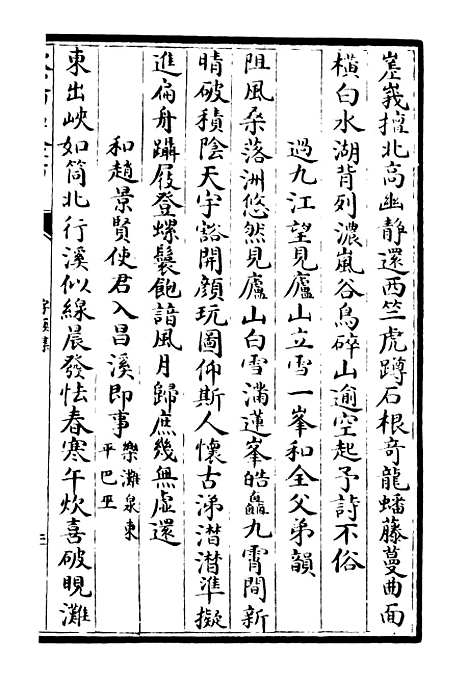 嵳峩擅北高幽静還西竺虎蹲石根竒龍蟠藤蔓曲面
横白水湖背列濃嵐谷鳥碎山逾空起予詩不俗
過九江望見廬山立雪一峯和全父弟韻
阻風桑落洲悠然見廬山白雪滿蓮峯皓矗九霄間新
晴破積陰天宇豁開顔玩圖仰斯人懷古涕潸潸準擬
進扁舟躡屐登螺鬟飽諳風月歸庶幾無虚還
和趙景賢使君入昌溪即事
樂灘泉東
平巴㘴
東出峽如筒北行溪似線晨發怯春寒午炊喜破晛灘
三